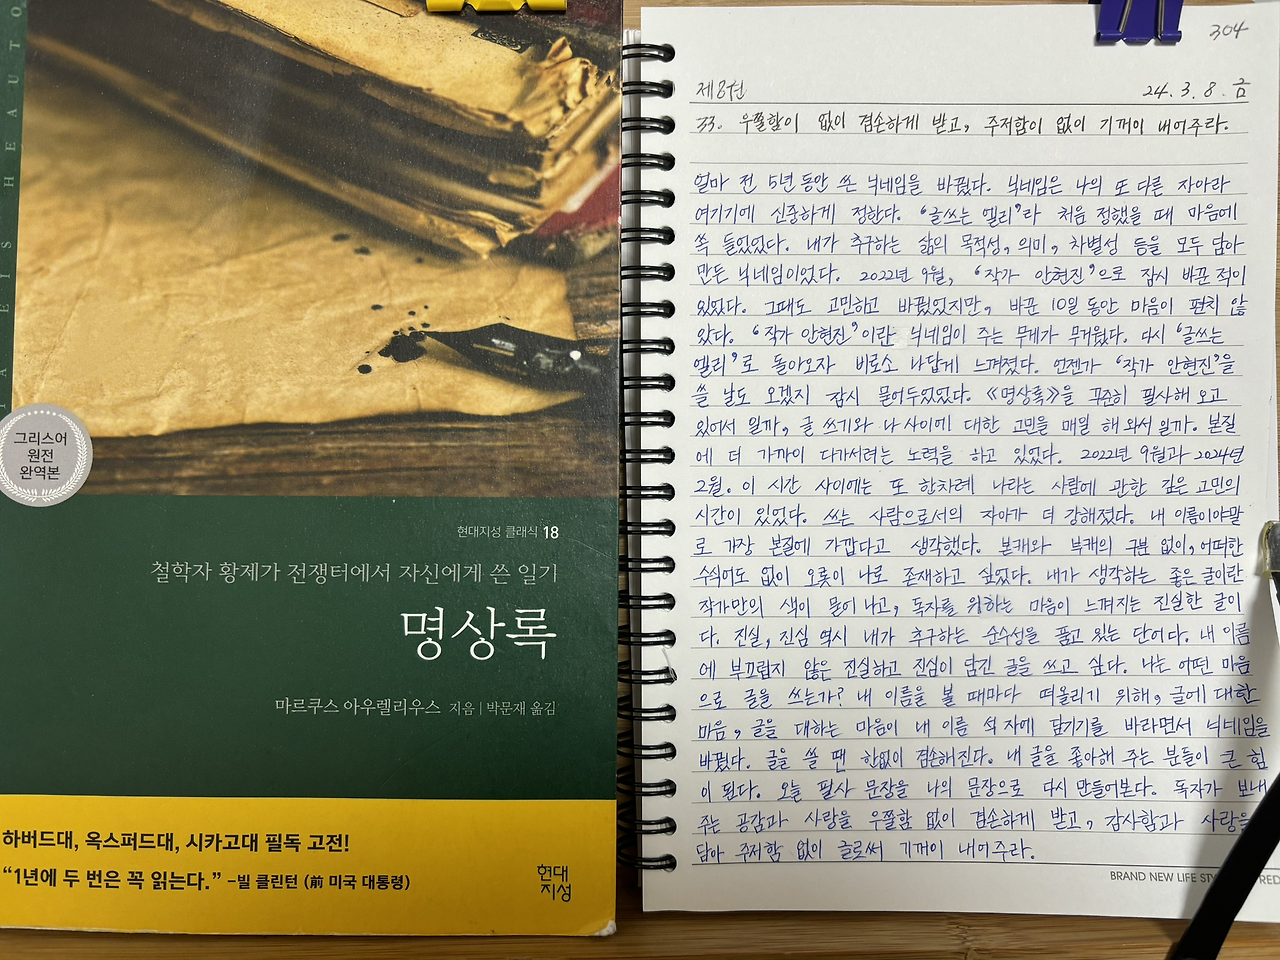 T A E I S H E A U T O
그리스어
원전
완역본
현대지성 클래식 18
철학자 황제가 전쟁터에서 자신에게 쓴 일기
명상록
마르쿠스 아우렐리우스 지음 | 박문재 옮김
하버드대, 옥스퍼드대, 시카고대 필독 고전!
“1년에 두 번은 꼭 읽는다.” –빌 클린턴 (前 미국 대통령)
현대
지성
304
제8권 24. 3. 8. 금
33. 우쭐함이 없이 겸손하게 받고, 주저함이 없이 기꺼이 내어주라.
얼마 전 5년 동안 쓴 닉네임을 바꿨다. 닉네임은 나의 또 다른 자아라
여기기에 신중하게 정한다. “글쓰는 엘리”라 처음 정했을 때 마음에
쏙 들었었다. 내가 추구하는 삶의 목적성, 의미, 차별성 등을 모두 담아
만든 닉네임이었다. 2022년 9월, “작가 안현진”으로 잠시 바꾼 적이
있었다. 그때도 고민하고 바꿨었지만, 바꾼 10일 동안 마음이 편치 않
았다. “작가 안현진”이란 닉네임이 주는 무게가 무거웠다. 다시 “글쓰는
엘리”로 돌아오자 비로소 나답게 느껴졌다. 언젠가 “작가 안현진”을
쓸 날도 오겠지 잠시 묻어두었었다. 《명상록》을 꾸준히 필사해 오고
있어서 일까, 글 쓰기와 나 사이에 대한 고민을 매일 해 와서 일까. 본질
에 더 가까이 다가서려는 노력을 하고 있었다. 2022년 9월과 2024년
2월. 이 시간 사이에는 또 한차례 나라는 사람에 관한 깊은 고민의
시간이 있었다. 쓰는 사람으로서의 자아가 더 강해졌다. 내 이름이야말
로 가장 본질에 가깝다고 생각했다. 본캐와 부캐의 구분 없이, 어떠한
수식어도 없이 오롯이 나로 존재하고 싶었다. 내가 생각하는 좋은 글이란
작가만의 색이 묻어 나고, 독자를 위하는 마음이 느껴지는 진실한 글이
다. 진실, 진심 역시 내가 추구하는 순수성을 품고 있는 단어다. 내 이름
에 부끄럽지 않은 진실하고 진심이 담긴 글을 쓰고 싶다. 나는 어떤 마음
으로 글을 쓰는가? 내 이름을 볼 때마다 떠올리기 위해, 글에 대한
마음, 글을 대하는 마음이 내 이름 석 자에 담기기를 바라면서 닉네임을
바꿨다. 글을 쓸 땐 한없이 겸손해진다. 내 글을 좋아해 주는 분들이 큰 힘
이 된다. 오늘 필사 문장을 나의 문장으로 다시 만들어본다. 독자가 보내
주는 공감과 사랑을 우쭐함 없이 겸손하게 받고, 감사함과 사랑을
담아 주저함 없이 글로써 기꺼이 내어주라.
BRAND NEW LIFE